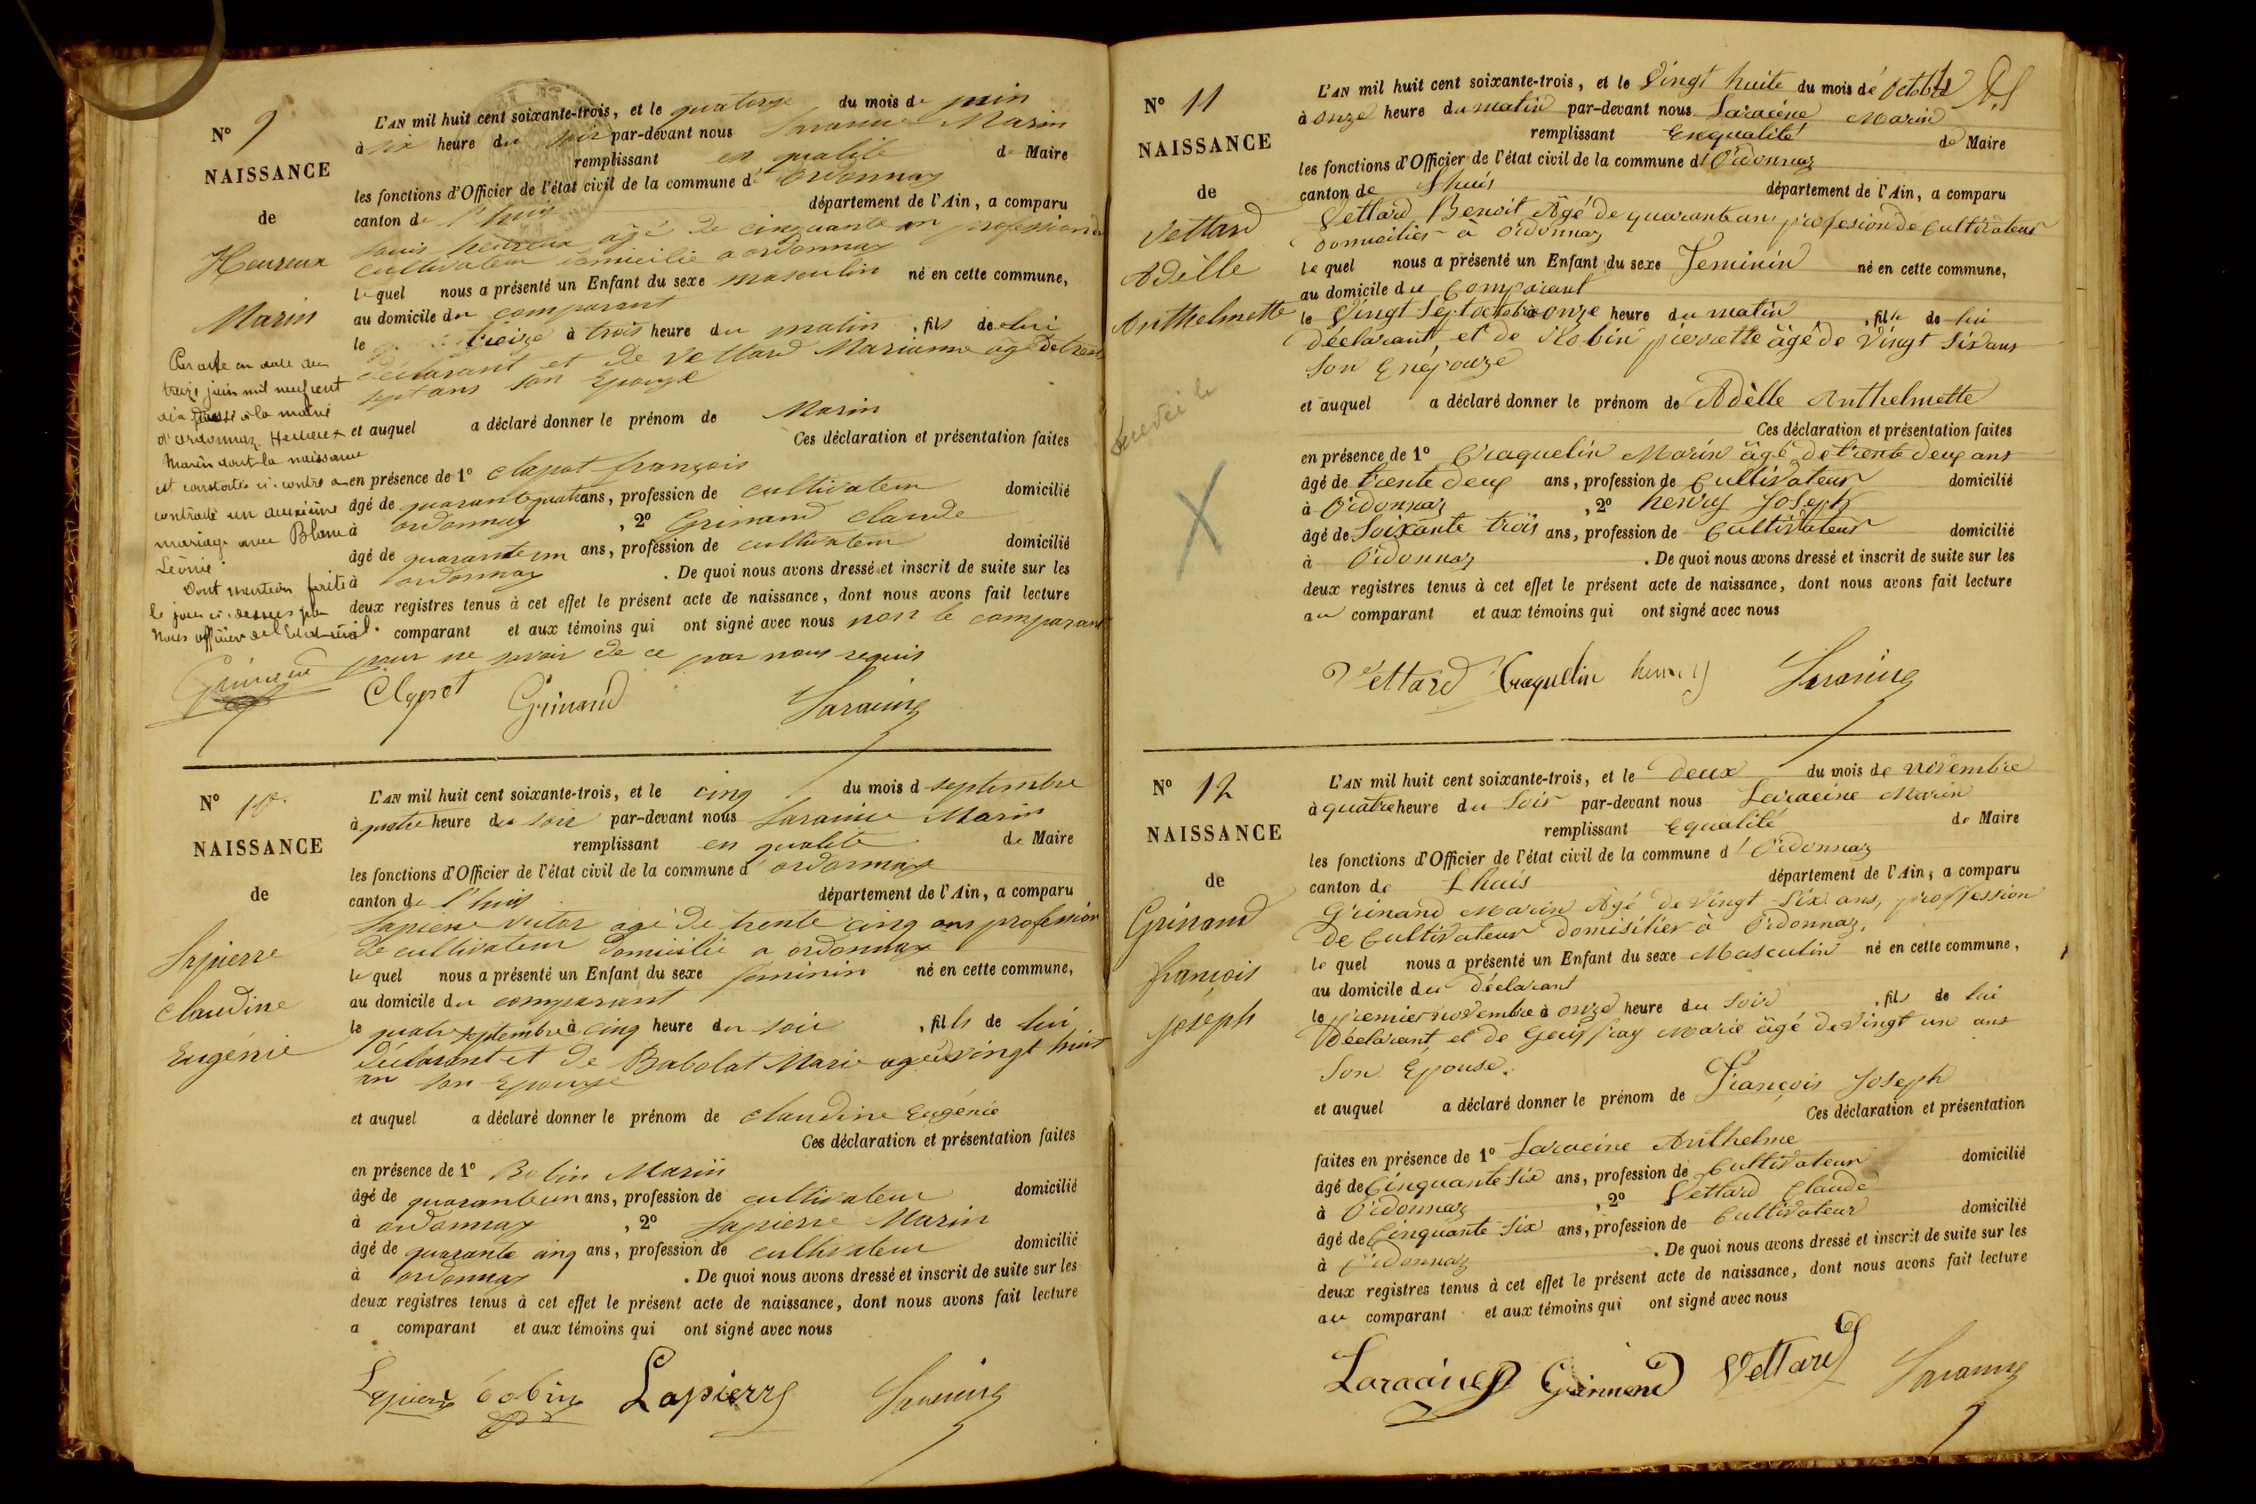 N° 9
NAISSANCE
de
Heureux
Marin
Par acte en date du
treize juin mil neuf cent
à la mairie
d'ordonnaz Heureux
Marin dont la naissance
est constatée ci-contre a
contracté un deuxième
mariage avec Blanc
Léonie
Dont mention faite
le jour ci-dessus par
Nous officier de l'Etat-civil.
Grimand
L'AN mil huit cent soixante-trois, et le quatorze du mois de juin
à six heure du soir par-devant nous Saracine Marin
remplissant en qualité de Maire
les fonctions d'Officier de l'état civil de la commune d' ordonnaz
canton de l'huis département de l'Ain, a comparu
heureux agé de cinquante un profession de
cultivateur domicilié a ordonnaz
lequel nous a présenté un Enfant du sexe masculin né en cette commune,
au domicile du comparant
le treize à trois heure du matin , fils de lui
déclarant et de Vettard Marianne agé de trente
sept ans son Epouze
et auquel a déclaré donner le prénom de Marin
Ces déclaration et présentation faites
en présence de 1° Clapot françois
âgé de quarante quatre ans, profession de cultivateur domicilié
à ordonnaz , 2° Grinand Claude
âgé de quarante un ans, profession de cultivateur domicilié
à ordonnaz . De quoi nous avons dressé et inscrit de suite sur les
deux registres tenus à cet effet le présent acte de naissance, dont nous avons fait lecture
comparant et aux témoins qui ont signé avec nous non le comparant
pour ne savoir de ce par nous requis
Clapot Grinand Saracine
N° 10
NAISSANCE
de
Lapierre
Claudine
Eugénie
L'AN mil huit cent soixante-trois, et le cinq du mois d septembre
à quatre heure du soir par-devant nous Saracine Marin
remplissant en qualité de Maire
les fonctions d'Officier de l'état civil de la commune d' ordonnaz
canton de l'huis département de l'Ain, a comparu
Lapierre Victor agé de trente cinq ans profession
de cultivateur domicilié a ordonnaz
lequel nous a présenté un Enfant du sexe feminin né en cette commune,
au domicile du comparant
le quatre septembre à cinq heure du soir , fille de lui
déclarant et de Babolat Marie agé de vingt huit
an son Epouze
et auquel a déclaré donner le prénom de Claudine Eugénie
Ces déclaration et présentation faites
en présence de 1° Bobin Marin
âgé de quarante un ans, profession de cultivateur domicilié
à ordonnaz , 2° Lapierre Marin
âgé de quarante cinq ans, profession de cultivateur domicilié
à ordonnaz . De quoi nous avons dressé et inscrit de suite sur les
deux registres tenus à cet effet le présent acte de naissance, dont nous avons fait lecture
a comparant et aux témoins qui ont signé avec nous
Lapierre bobin Lapierre Saracine
N° 11
NAISSANCE
de
Vettard
Adélle
Anthelmette
L'AN mil huit cent soixante-trois, et le Vingt huite du mois de Octobre
à onze heure du matin par-devant nous Saracine Marin
remplissant Enqualité de Maire
les fonctions d'Officier de l'état civil de la commune d' Ordonnaz
canton de Lhuis département de l'Ain, a comparu
Vettard Benoit Agé de quarante ans profesion de Cultivateur
Domicilier à Ordonnaz
lequel nous a présenté un Enfant du sexe Feminin né en cette commune,
au domicile du Comparant
le Vingt Sept octobre à onze heure du matin , fille de lui
déclarant et de Robin pierrette âgé de Vingt Six ans
Son Enépouze
et auquel a déclaré donner le prénom de Adèlle Anthelmette
Ces déclaration et présentation faites
en présence de 1° Craquelin Marin âgé de trente deux ans
âgé de trente deux ans, profession de Cultivateur domicilié
à Ordonnaz , 2° henry Joseph
âgé de Soixante trois ans, profession de Cultivateur domicilié
à Ordonnaz . De quoi nous avons dressé et inscrit de suite sur les
deux registres tenus à cet effet le présent acte de naissance, dont nous avons fait lecture
au comparant et aux témoins qui ont signé avec nous
Vettard Craquelin henry Saracine
N° 12
NAISSANCE
de
Grinand
françois
joseph
L'AN mil huit cent soixante-trois, et le deux du mois de novembre
à quatre heure du Soir par-devant nous Saracine Marin
remplissant Equalité de Maire
les fonctions d'Officier de l'état civil de la commune d' Ordonnaz
canton de Lhuis département de l'Ain, a comparu
Grinand Marin Agé de Vingt Six ans, proffession
De Cultivateur Domisilier à Ordonnaz.
lequel nous a présenté un Enfant du sexe Masculin né en cette commune,
au domicile du Déclarant
le Premier novembre à onze heure du Soir , fils de lui
Déclarant et de Geuffray Marie âgé de Vingt un ans
Son Epouse.
et auquel a déclaré donner le prénom de François Joseph
Ces déclaration et présentation
faites en présence de 1° Saracine Anthelme
âgé de Cinquante Six ans, profession de Cultivateur domicilié
à Ordonnaz , 2° Vettard Claude
âgé de Cinquante Six ans, profession de Cultivateur domicilié
à Ordonnaz . De quoi nous avons dressé et inscrit de suite sur les
deux registres tenus à cet effet le présent acte de naissance, dont nous avons fait lecture
au comparant et aux témoins qui ont signé avec nous
Saracine Grinand Vettard Saracine